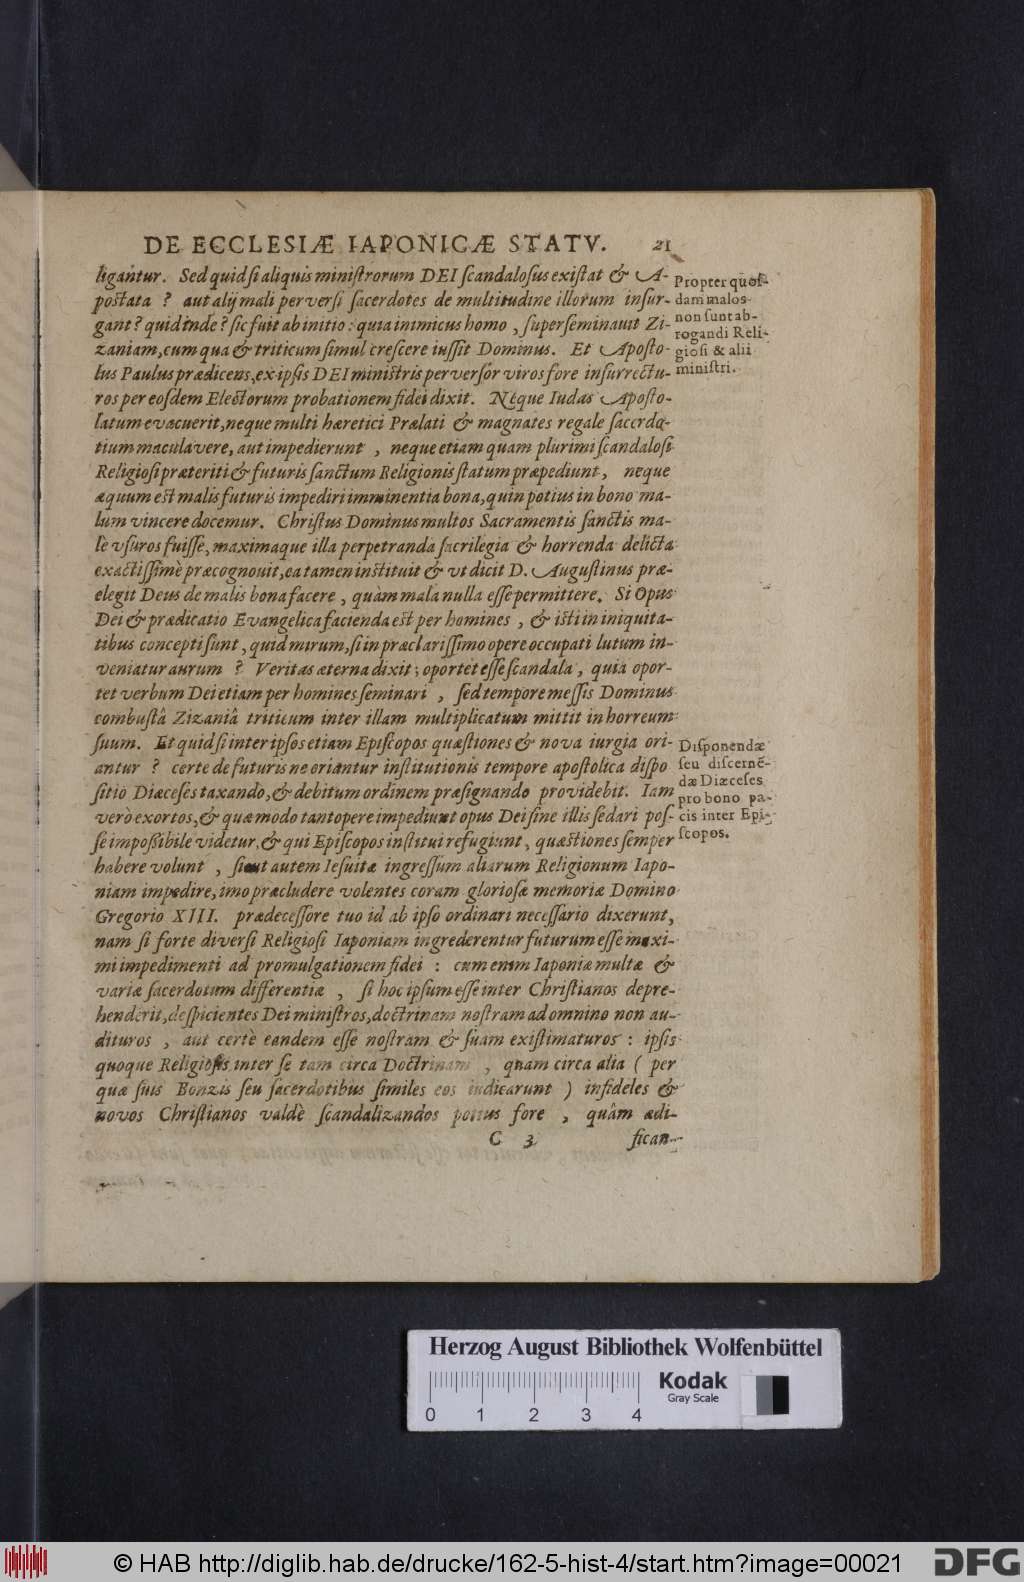 DE ECCLESIÆ IAPONICÆ STATV. 21
ligantur. Sed quid si aliquis ministrorum DEI scandalosus existat & A-
postata ? aut alij mali perversi sacerdotes de multitudine illorum insur-
gant? quid inde? sic fuit ab initio: quia inimicus homo, superseminauit Zi-
zaniam, cum qua & triticum simul crescere iussit Dominus. Et Aposto-
lus Paulus prædicens, ex ipsis DEI ministris perversos viros fore insurrectu-
ros per eosdem Electorum probationem fidei dixit. Neque Iudas Aposto-
latum evacuerit, neque multi hæretici Prælati & magnates regale sacerdo-
tium maculavere, aut impedierunt , neque etiam quam plurimi scandalosi
Religiosi præteriti & futuris sanctum Religionis statum præpediunt, neque
æquum est malis futuris impediri imminentia bona, quin potius in bono ma-
lum vincere docemur. Christus Dominus multos Sacramentis sanctis ma-
lè vsuros fuisse, maximaque illa perpetranda sacrilegia & horrenda delicta
exactissimè præcognouit, ea tamen instituit & vt dicit D. Augustinus præ-
elegit Deus de malis bona facere, quàm mala nulla esse permittere. Si Opus
Dei & prædicatio Evangelica facienda est per homines , & isti in iniquita-
tibus concepti sunt, quid mirum, si in præclarissimo opere occupati lutum in-
veniatur aurum ? Veritas æterna dixit; oportet esse scandala, quia opor-
tet verbum Dei etiam per homines seminari , sed tempore messis Dominus
combustâ Zizaniâ triticum inter illam multiplicatum mittit in horreum
suum. Et quid si inter ipsos etiam Episcopos quæstiones & nova iurgia ori-
antur ? certe de futuris ne oriantur institutionis tempore apostolica dispo
sitio Diæceses taxando, & debitum ordinem præsignando providebit. Iam
verò exortos, & quæ modo tantopere impediunt opus Dei sine illis sedari pos-
se impoßibile videtur, & qui Episcopos institui refugiunt, quæstiones semper
habere volunt , sicut autem Iesuitæ ingressum aliarum Religionum Iapo-
niam impedire, imo præcludere volentes coram gloriosæ memoriæ Domino
Gregorio XIII. prædecessore tuo id ab ipso ordinari necessario dixerunt,
nam si forte diversi Religiosi Iaponiam ingrederentur futurum esse maxi-
mi impedimenti ad promulgationem fidei : cum enim Iaponiæ multæ &
variæ sacerdotum differentiæ , si hoc ipsum esse inter Christianos depre-
henderit, despicientes Dei ministros, doctrinam nostram ad omnino non au-
dituros , aut certè eandem esse nostram & suam existimaturos : ipsis
quoque Religiosis inter se tam circa Doctrinam , quam circa alia ( per
quæ suis Bonzis seu sacerdotibus similes eos iudicarunt ) infideles &
novos Christianos valdè scandalizandos potius fore , quàm ædi-
C 3 fican-
Propter quos-
dam malos
non sunt ab-
rogandi Reli-
giosi & alii
ministri.
Disponendæ
seu discernē-
dæ Diæceses
pro bono pa-
cis inter Epi-
scopos.
Herzog August Bibliothek Wolfenbüttel
0 1 2 3 4
Kodak
Gray Scale
© HAB http://diglib.hab.de/drucke/162-5-hist-4/start.htm?image=00021
DFG